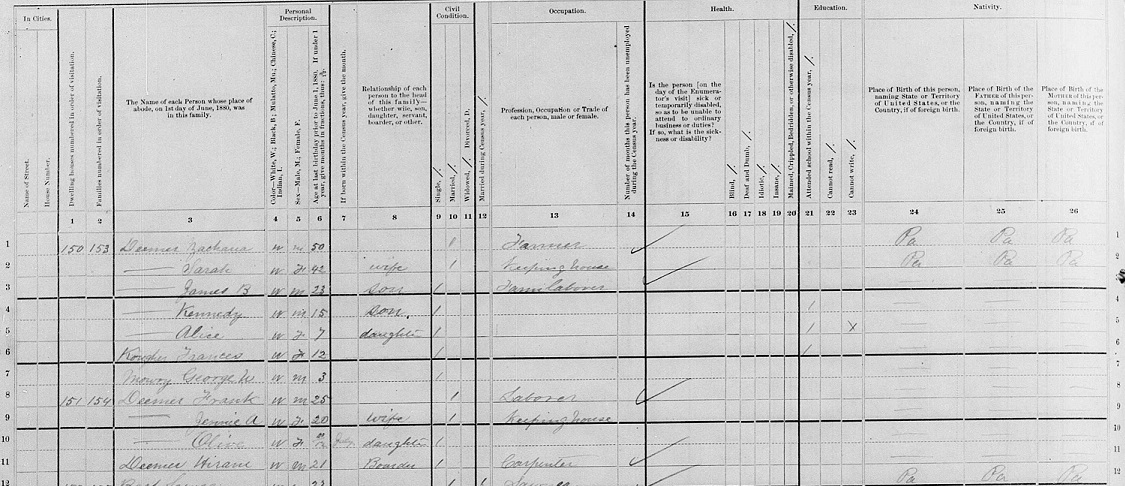 In Cities.
Name of Street.
House Number.
Dwelling houses numbered in order of visitation.
Families numbered in order of visitation.
The Name of each Person whose place of abode, on 1st day of June, 1880, was in this family.
Personal Description.
Color—White, W.; Black, B.; Mulatto, Mu.; Chinese, C.; Indian, I.
Sex—Male, M.; Female, F.
Age at last birthday prior to June 1, 1880. If under 1 year, give months in fractions, thus:
If born within the Census year, give the month.
Relationship of each person to the head of this family—whether wife, son, daughter, servant, boarder, or other.
Civil Condition.
Single, /.
Married, /.
Widowed, /. Divorced, D.
Married during Census year, /.
Occupation.
Profession, Occupation or Trade of each person, male or female.
Number of months this person has been unemployed during the Census year.
Health.
Is the person [on the day of the Enumerator's visit] sick or temporarily disabled, so as to be unable to attend to ordinary business or duties? If so, what is the sickness or disability?
Blind, /.
Deaf and Dumb, /.
Idiotic, /.
Insane, /.
Maimed, Crippled, Bedridden, or otherwise disabled, /.
Education.
Attended school within the Census year, /.
Cannot read, /.
Cannot write, /.
Nativity.
Place of Birth of this person, naming State or Territory of United States, or the Country, if of foreign birth.
Place of Birth of the FATHER of this person, naming the State or Territory of United States, or the Country, if of foreign birth.
Place of Birth of the MOTHER of this person, naming the State or Territory of United States, or the Country, if of foreign birth.
1 2 3 4 5 6 7 8 9 10 11 12 13 14 15 16 17 18 19 20 21 22 23 24 25 26
1 150 153 Deemer W m 50 / Farmer Pa Pa Pa 1
2 — Sarah W F 42 wife / Keeping house Pa Pa Pa 2
3 — James B W m 23 son / Farm laborer
4 — Kennedy W m 15 son / / 4
5 — Alice W F 7 daughter / / X 5
6 Frances W F 12 / / 6
7 Mowry George W m 3 / 7
8 151 154 Deemer Frank W m 25 / Laborer 8
9 — Jennie A W F 20 wife / Keeping house 9
10 — Olive W F daughter / 10
11 Deemer Hiram W m 21 Boarder / Carpenter 11
12 Pa Pa Pa 12